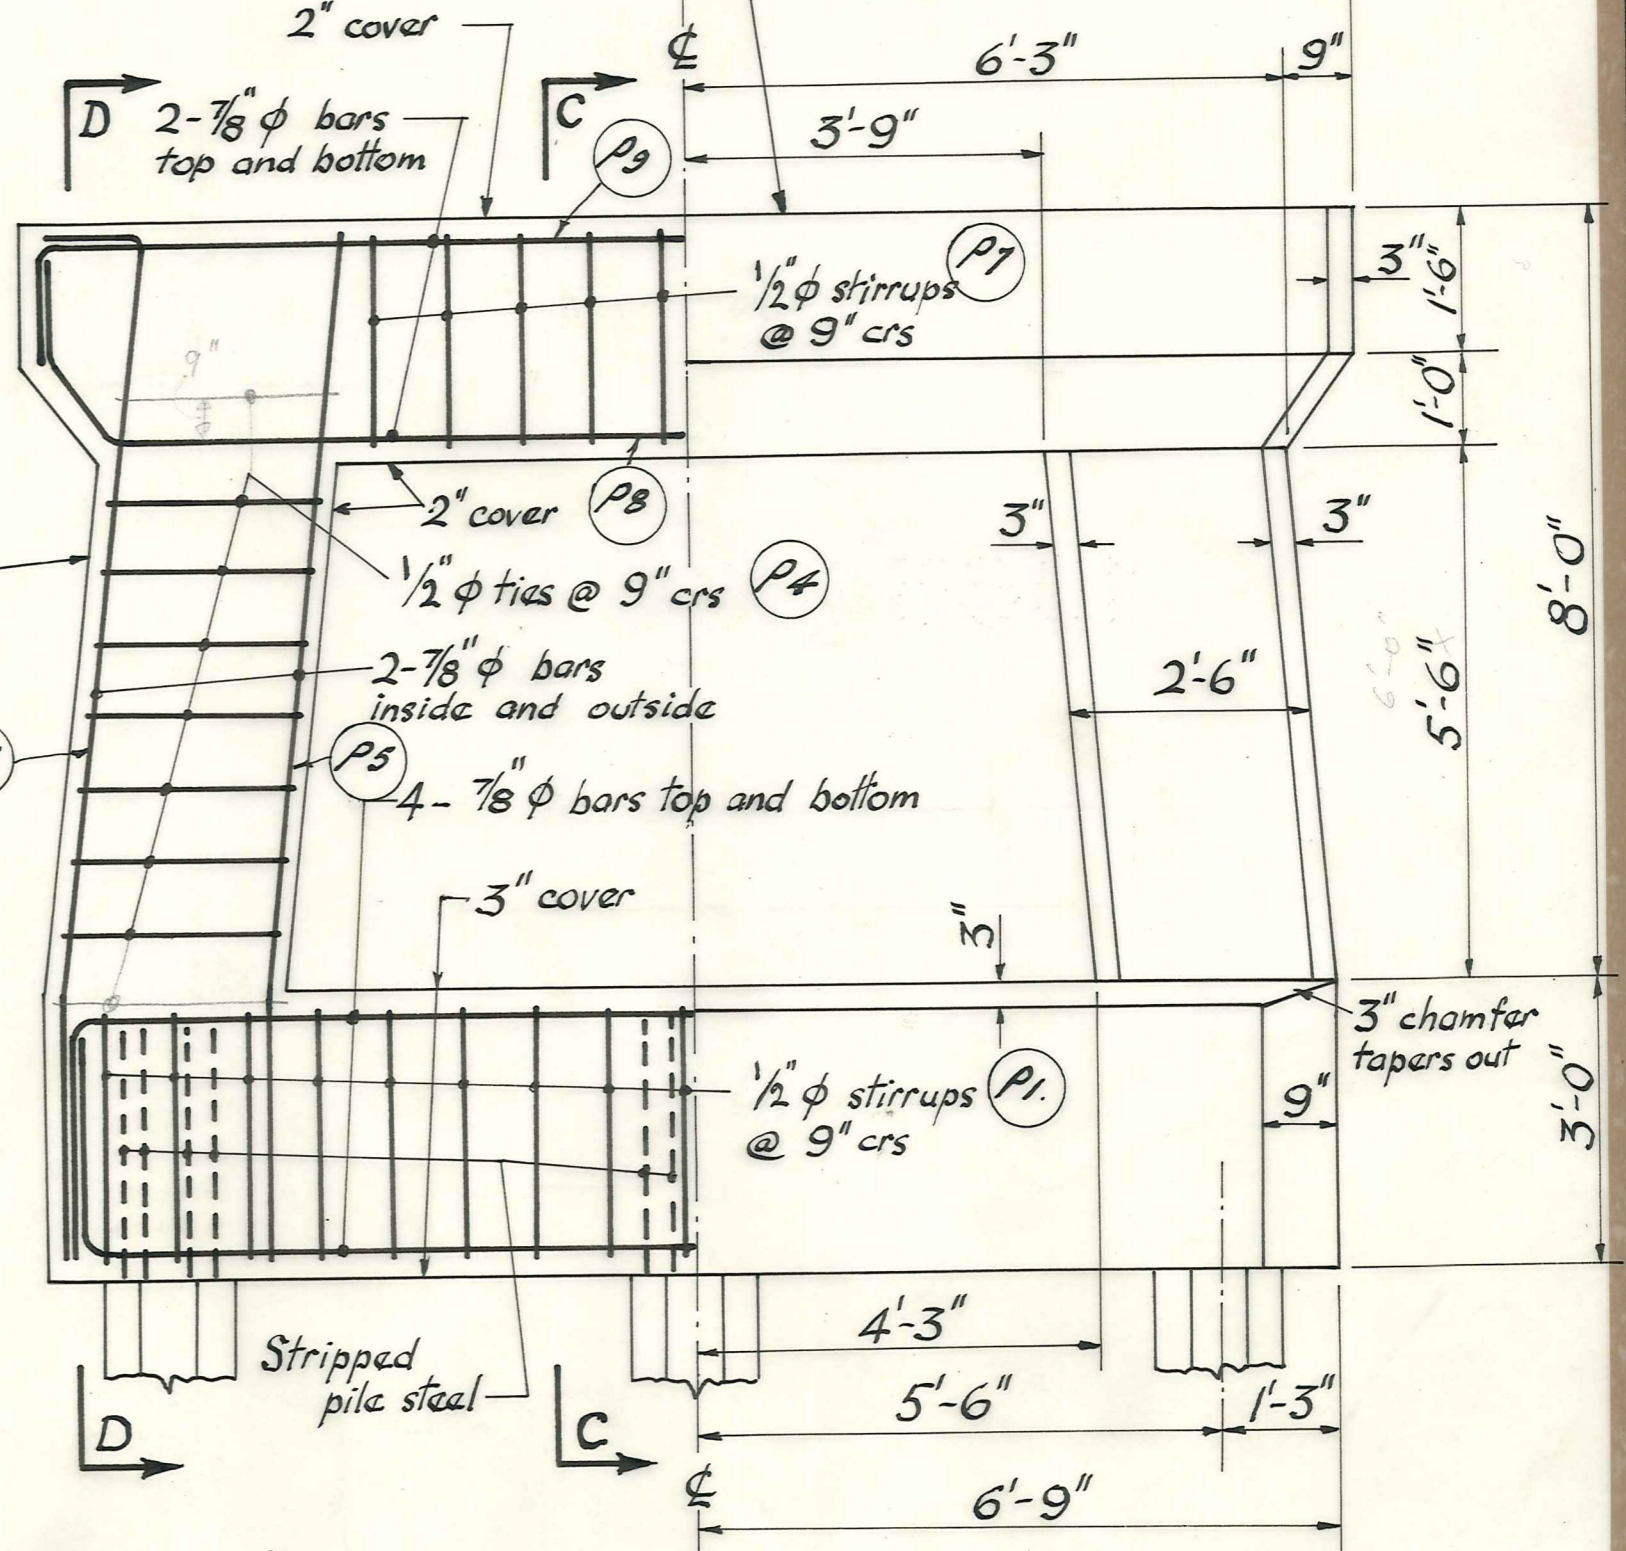 2" cover
℄
6'-3"
9"
D
2-7/8" φ bars
top and bottom
C
P9
3'-9"
P7
1/2" φ stirrups
@ 9" crs
3"
1'-6"
9"
1'-0"
2" cover
P8
3"
3"
1/2" φ ties @ 9" crs
P4
8'-0"
2-7/8" φ bars
inside and outside
2'-6"
6'-0"
5'-6"
P5
4- 7/8" φ bars top and bottom
3" cover
3"
3" chamfer
tapers out
1/2" φ stirrups
@ 9" crs
P1.
9"
3'-0"
Stripped
pile steel
4'-3"
5'-6"
1'-3"
D
C
℄
6'-9"